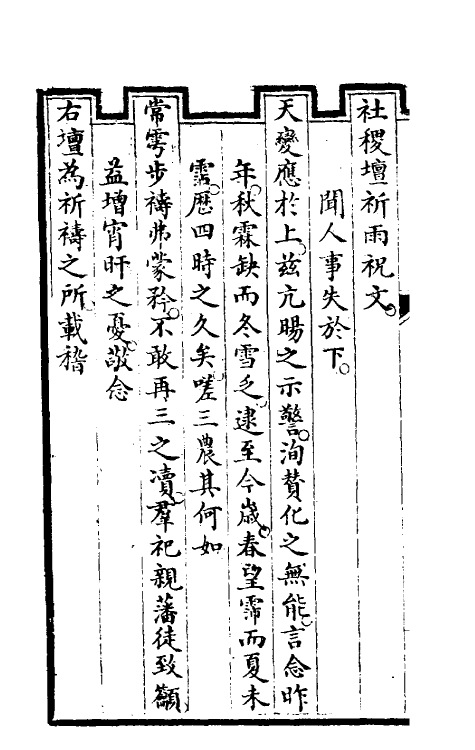 社稷壇祈雨祝文
聞人事失於下
天變應於上茲亢暘之示警洵贊化之無能言念昨
年秋霖缺而冬雪乏逮至今歲春望霈而夏未
霑歷四時之久矣嗟三農其何如
常雩步禱弗蒙矜不敢再三之瀆羣祀親藩徒致籲
益增宵旰之憂敬念
右壇為祈禱之所載稽